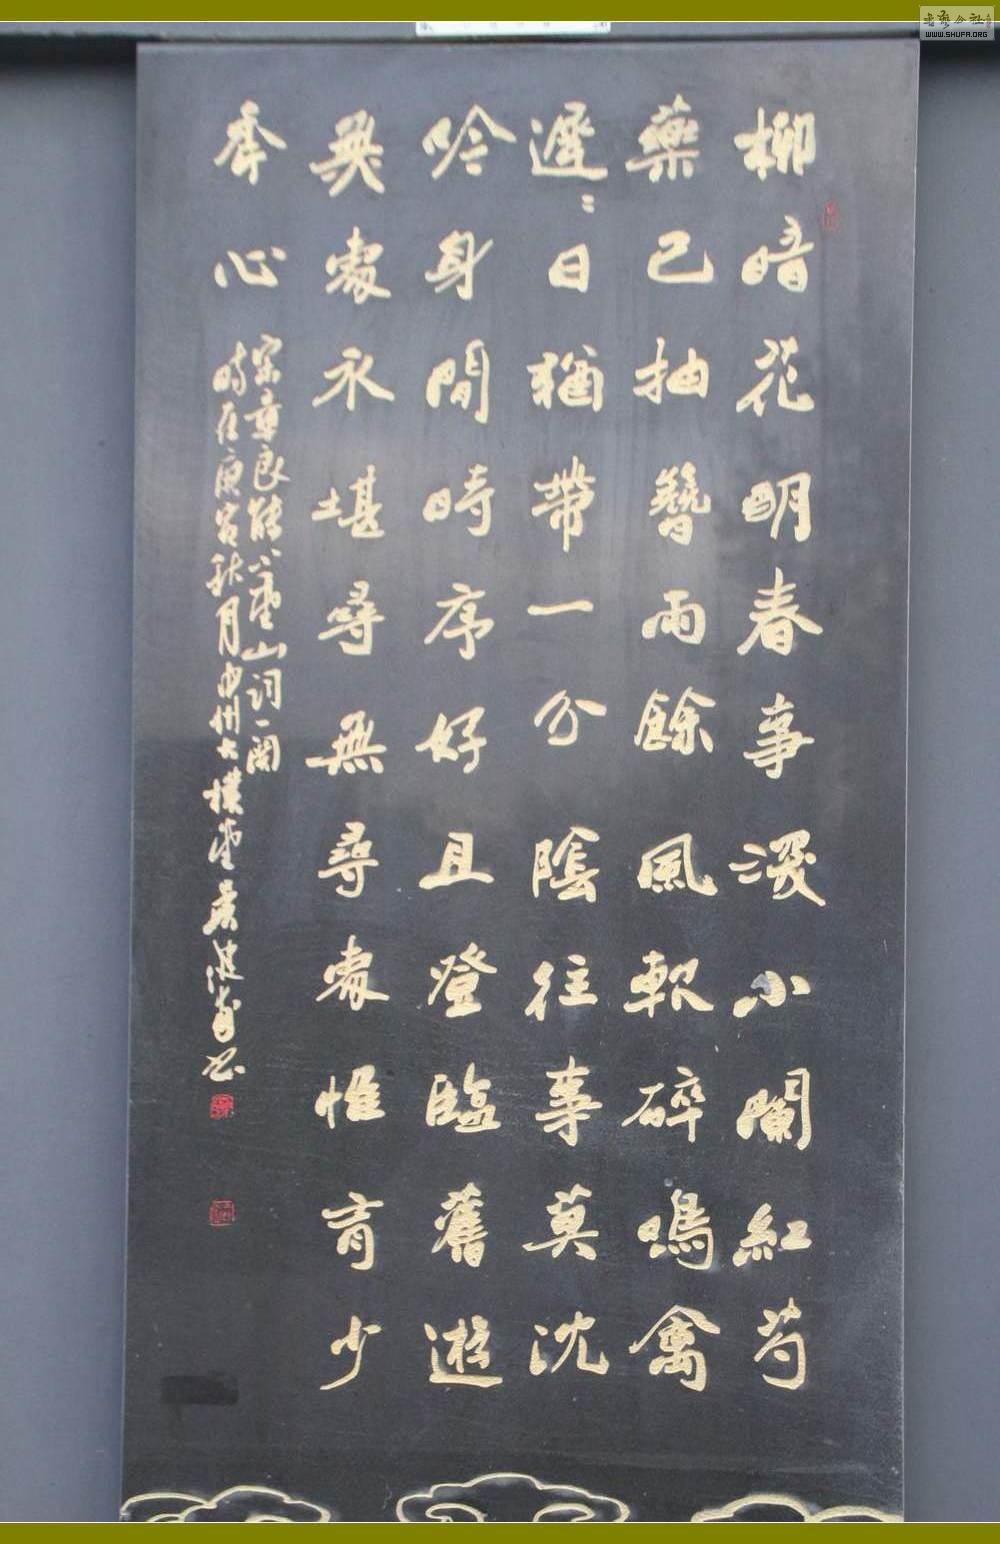 柳暗花明春事深小闌紅芍
藥已抽簪雨餘風軟碎鳴禽
遲〻日猶帶一分陰往事莫沈
吟身閒時序好且登臨舊遊
無處不堪尋無尋處惟有少
年心
宋章良能小重山詞一闋
時在庚寅秋月中州大樸堂
書法公社
WWW.SHUFA.ORG